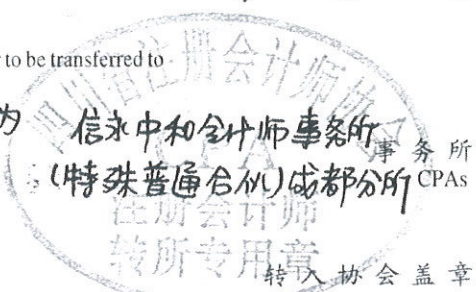 to be transferred to
为 信永中和会计师事务所
事务所
(特殊普通合伙)成都分所 CPAs
四川省注册会计师协会
注册会计师
转所专用章
转入协会盖章